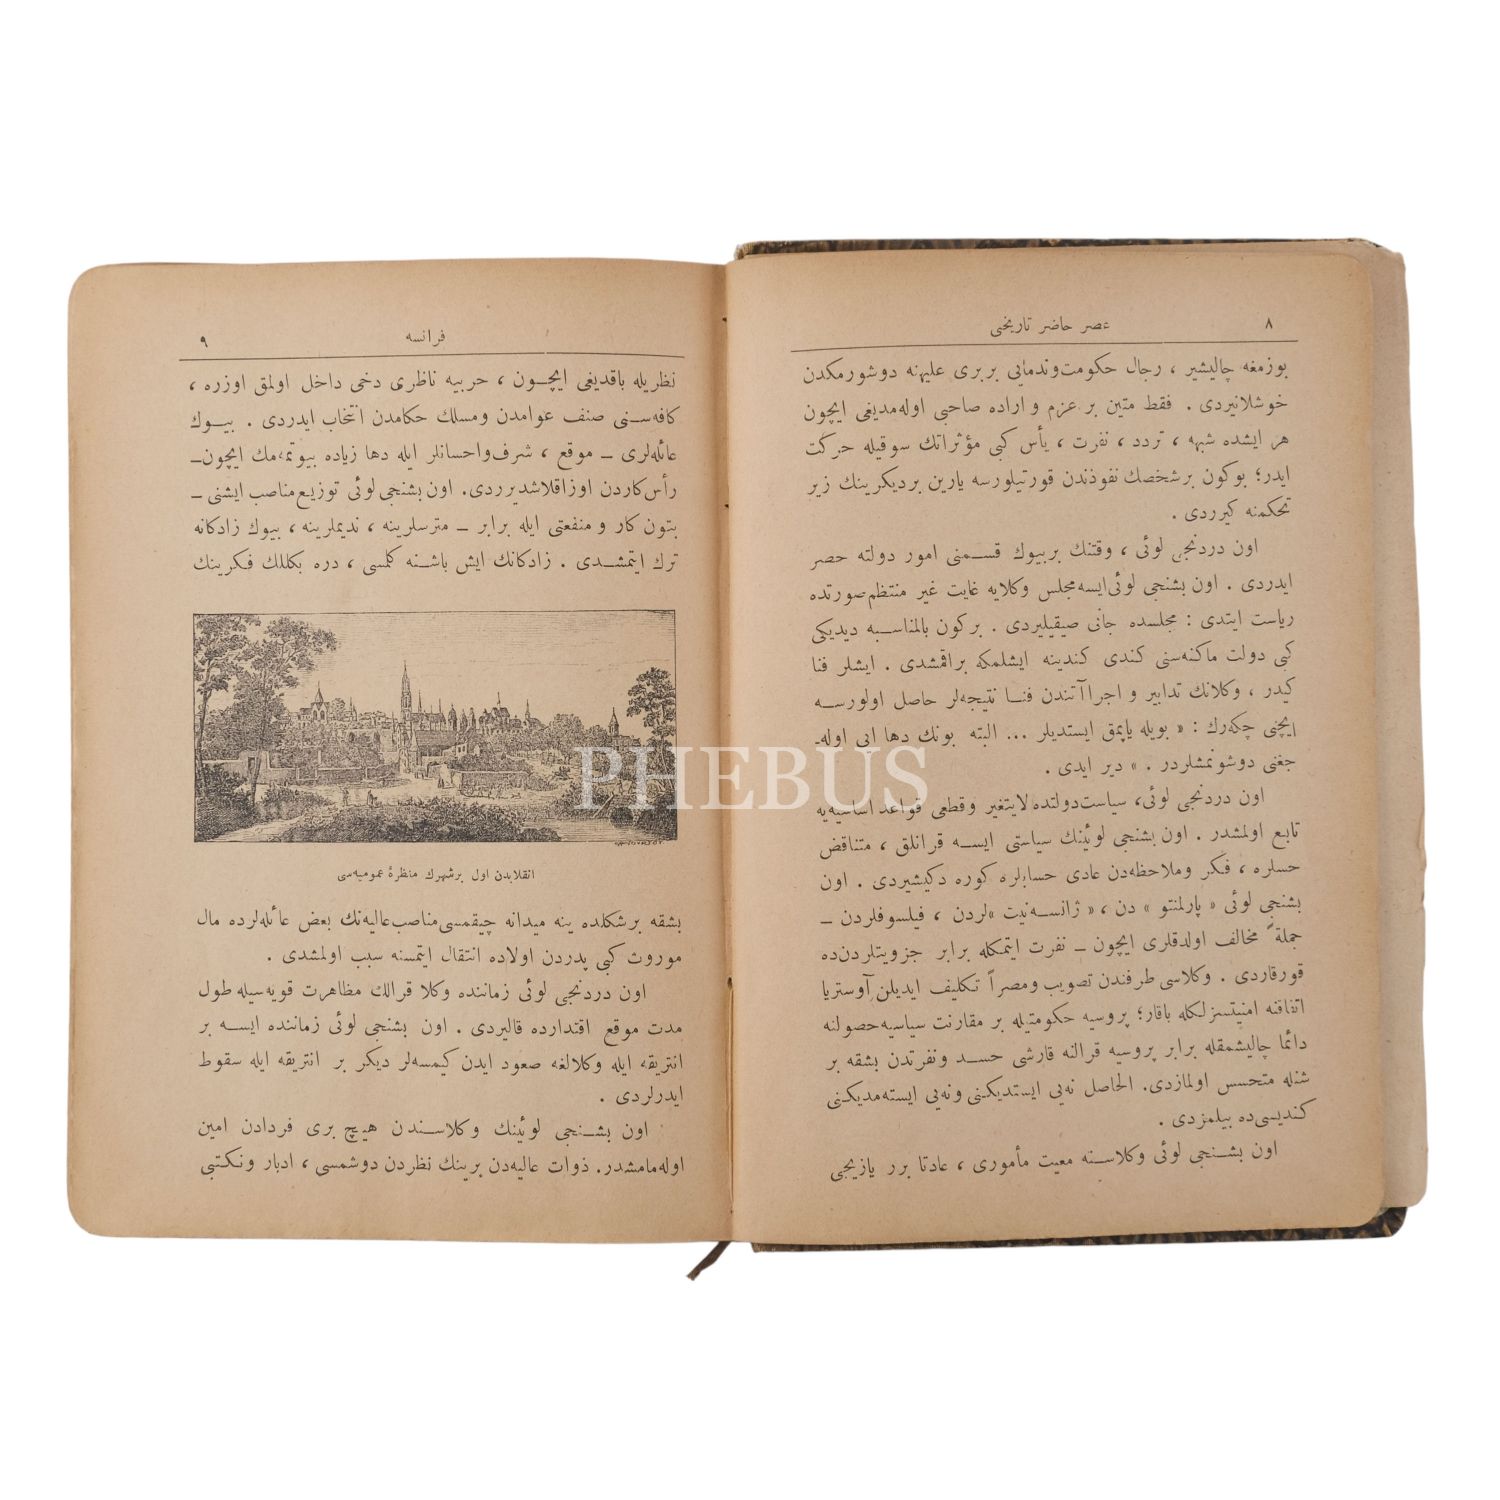 ٨
عصر حاضر تاريخى
بوزمغه چاليشير ، رجال حكومت وندمايى بربرى عليهنه دوشورمكدن
خوشلانيردى . فقط متين بر عزم و اراده صاحبى اوله مديغى ايچون
هر ايشده شبهه ، تردد ، نفرت ، يأس كبى مؤثراتك سوقيله حركت
ايدر؛ بوكون برشخصك نفوذندن قورتيلورسه يارين برديكرينك زير
تحكمنه كيرردى .
اون دردنجى لوئى ، وقتنك بربيوك قسمنى امور دولته حصر
ايدردى . اون بشنجى لوئى ايسه مجلس وكلايه غايت غير منتظم صورتده
رياست ايتدى : مجلسده جانى صيقيليردى . بركون بالمناسبه ديديكى
كبى دولت ماكنه سنى كندى كندينه ايشلمكه براقمشدى . ايشلر فنا
كيدر ، وكلانك تدابير و اجراآتندن فنا نتيجه لر حاصل اولورسه
ايچنى چكه رك : « بويله ياپمق ايستديلر ... البته بونك دها ايى اوله‌ـ
جغنى دوشونمشلردر . » دير ايدى .
اون دردنجى لوئى، سياست دولتده لايتغير و قطعى قواعد اساسيه يه
تابع اولمشدر . اون بشنجى لوئينك سياستى ايسه قرانلق ، متناقض
حسلره ، فكر وملاحظه دن عادى حسابلره كوره دكيشيردى . اون
بشنجى لوئى « پارلمنتو » دن ، « ژانسه نيت » لردن ، فيلسوفلردن ـ
جملةً مخالف اولدقلرى ايچون ـ نفرت ايتمكله برابر جزويتلردن ده
قورقاردى . وكلاسى طرفندن تصويب ومصراً تكليف ايديلن آوستريا
اتفاقنه امنيتسزلكله باقار؛ پروسيه حكومتيله بر مقارنت سياسيه حصولنه
دائما چاليشمقله برابر پروسيه قرالنه قارشى حسد ونفرتدن بشقه بر
شئله متحسس اولمازدى. الحاصل نه يى ايستديكنى ونه يى ايسته مديكنى
كنديسى ده بيلمزدى .
اون بشنجى لوئى وكلاسنه معيت مأمورى ، عادتا برر يازيجى
فرانسه
٩
نظريله باقديغى ايچون ، حربيه ناظرى دخى داخل اولمق اوزره ،
كافه سنى صنف عوامدن ومسلك حكامدن انتخاب ايدردى . بيوك
عائله لرى ـ موقع ، شرف واحسانلر ايله دها زياده بيوتمه مك ايچون ـ
رأس كاردن اوزاقلاشديرردى. اون بشنجى لوئى توزيع مناصب ايشنى ـ
بتون كار و منفعتى ايله برابر ـ مترسلرينه ، نديملرينه ، بيوك زادكانه
ترك ايتمشدى . زادكانك ايش باشنه كلمسى ، دره بكلك فكرينك
انقلابدن اول برشهرك منظرهٔ عموميه سى
بشقه برشكلده ينه ميدانه چيقمسى مناصب عاليه نك بعض عائله لرده مال
موروث كبى پدردن اولاده انتقال ايتمسنه سبب اولمشدى .
اون دردنجى لوئى زماننده وكلا قرالك مظاهرت قويه سيله طول
مدت موقع اقتدارده قاليردى . اون بشنجى لوئى زماننده ايسه بر
انتريقه ايله وكلالغه صعود ايدن كيمسه لر ديكر بر انتريقه ايله سقوط
ايدرلردى .
اون بشنجى لوئينك وكلاسندن هيچ برى فردادن امين
اوله مامشدر. ذوات عاليه دن برينك نظردن دوشمسى ، ادبار ونكبتى
PHEBUS